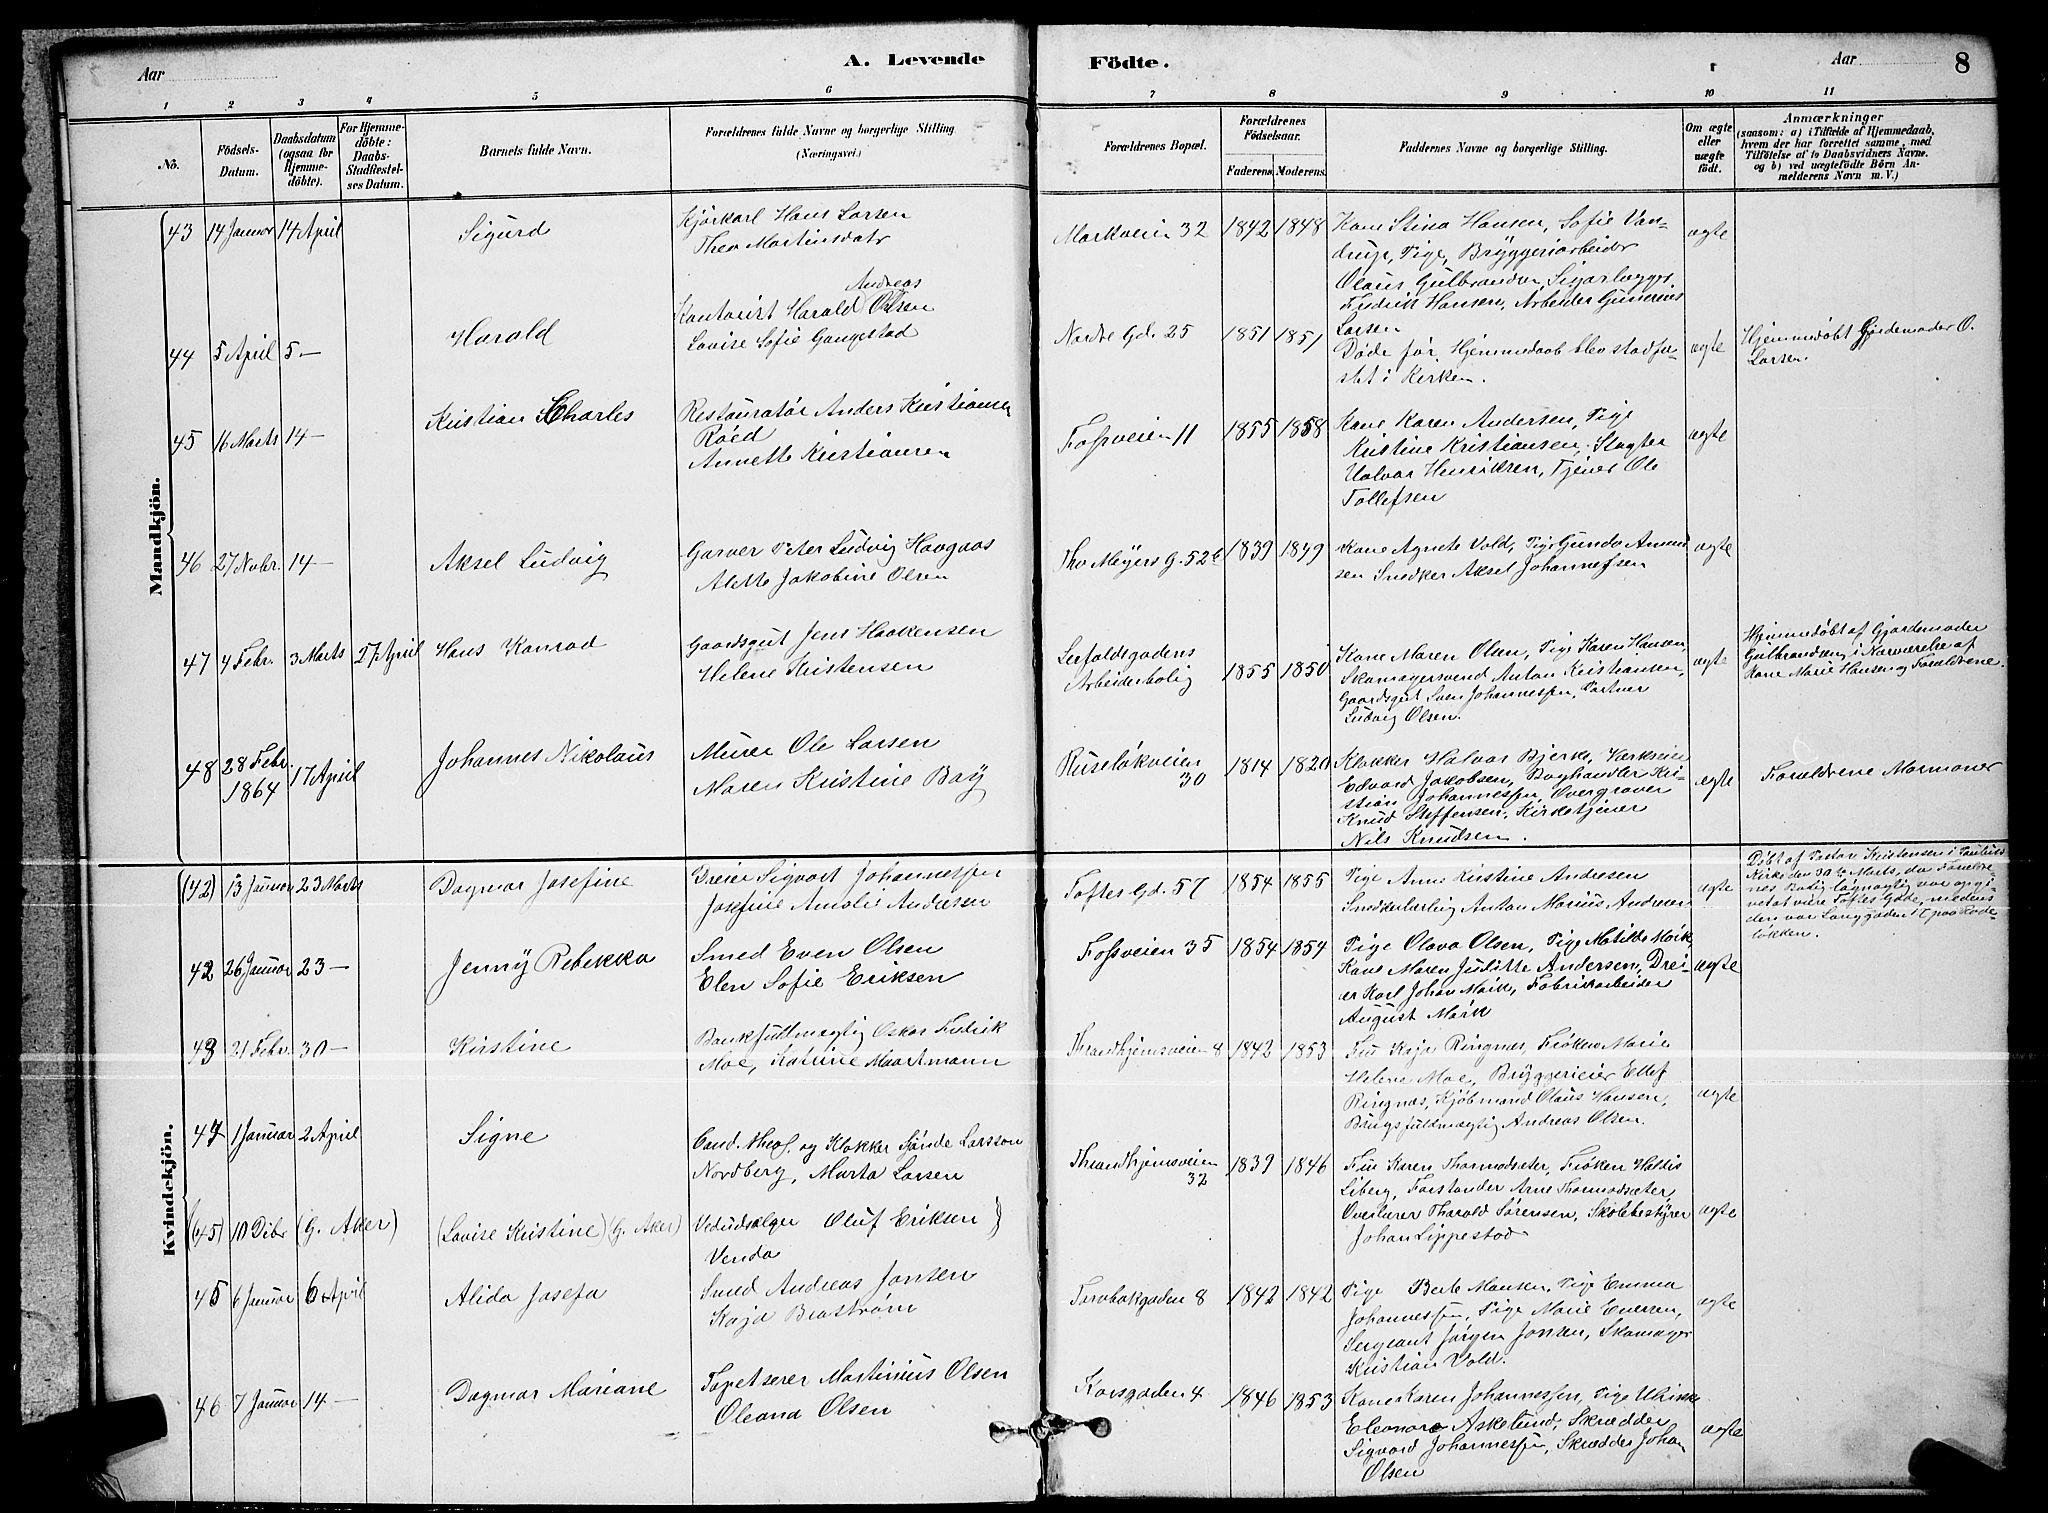 Aar
A. Levende
Födte.
Aar
8
1 2 3 4 5 6 7 8 9 10 11
No.
Födsels-
Datum.
Daabsdatum
(ogsaa for
Hjemme-
döbte).
For Hjemme-
döbte:
Daabs-
Stadfæstel-
ses Datum.
Barnets fulde Navn.
Forældrenes fulde Navne og borgerlige Stilling
(Næringsvei.)
Forældrenes Bopæl.
Forældrenes
Födselsaar.
Faderens. Moderens.
Faddernes Navne og borgerlige Stilling.
Om ægte
eller
uægte
födt.
Anmærkninger
(saasom: a) i Tilfælde af Hjemmedaab,
hvem der har forrettet samme, med
Tilföielse af to Daabsvidners Navne.
og b) ved uægtefödte Börn An-
melderens Navn m. V.)
Mandkjön.
43 14 Januar 14 April
Sigurd
Kjørkarl Hans Larsen
Thea Martinsdatr
Markveien 32 1842 1848
Kone Stina Hansen, Sofie Van-
drup, Pige, Bryggeriarbeider
Olaus Gulbrandsen, Sigarlægger
Fredrik Hansen, Arbeider Gunerius
Larsen
ægte
44 5 April 5 —
Harald
Andreas
Kontorist Harald Olsen
Lovise Sofie Gangestad
Nordre Gd. 25 1851 1851
Døde før Hjemmedaab blev stadfæ-
stet i Kirken.
ægte
Hjemmedøbt Gjordemoder O.
Larsen.
45 16 Marts 14 —
Kristian Charles
Restauratør Anders Kristiansen
Røed
Annette Kristiansen
Fossveien 11 1855 1858
Kone Karen Andersen, Pige
Kristine Kristiansen, Slagter
Halvor Henriksen, Tjener Ole
Tollefsen
ægte
46 27 Novbr. 14 —
Aksel Ludvig
Garver Peter Ludvig Haugaas
Alette Jakobine Olsen
Tho Meyers G. 52 b 1839 1849
Kone Agnete Vold, Pige Gunda Amund
sen Snedker Aksel Johannessen
ægte
47 4 Febr. 3 Marts 17 April
Hans Konrad
Gaardsgut Jens Haakensen
Helene Kristensen
Seilduksgadens
Arbeiderbolig
1855 1850
Kone Maren Olsen, Pige Karen Hansen,
Skomagersvend Anton Kristiansen,
Gaardsgut Sven Johannessen, Partner
Ludvig Olsen.
ægte
Hjemmedøbt af Gjordemoder
Gulbrandsen i Nærværelse af
Kone Marie Hansen og Forældrene.
48 28 Febr.
1864
17 April
Johannes Nikolaus
Murer Ole Larsen
Maren Kristine Bøy
Ruseløkveien
30
1814 1820
Klokker Halvor Bjerke, Værkseier
Edvard Jakobsen, Boghandler Kri-
stian Johannessen, Overgraver
Knud Steffensen, Kirketjener
Nils Knudsen.
ægte
Forældrene Mormoner
Kvindekjön.
(42) 13 Januar 23 Marts
Dagmar Josefine
Dreier Sigvart Johannessen
Josefine Amalie Andersen
Toftes Gd. 57 1854 1855
Pige Anne Kristine Andresen
Snedkerlærling Anton Marius Andresen
ægte
Døbt af Pastor Kristensen i Paulus
Kirke den 30te Marts, da Foræld-
nes Bolig løgnagtig var opgi-
vet at være Toftes Gade, medens
den var Langgaden 17 paa Rode-
løkken.
42 26 Januar 23 —
Jenny Rebekka
Smed Even Olsen
Elen Sofie Eriksen
Fossveien 35 1854 1854
Pige Olava Olsen, Pige Matilde Mørk,
Kone Maren Julitte Andersen, Drei-
er Karl Johan Mørk, Fabrikarbeider
August Mørk
ægte
43 21 Febr. 30 —
Kirstine
Bankfuldmægtig Oskar Fredrik
Moe, Katrine Maartmann
Thrandhjemsveien 8 1842 1853
Fru Kaja Ringnæs, Frøken Marie
Helene Moe, Bryggerieier Ellef
Ringnæs, Kjøbmand Olaus Hansen,
Brugsfuldmægtig Andreas Olsen.
ægte
44 1 Januar 2 April
Signe
Cand. theol. og Klokker Sjønde Larsson
Nordberg, Marta Larsen
Thrandhjemsveien
32
1839 1846
Fru Karen Thormodsæter, Frøken Haldis
Liberg, Forstander Arne Thormodsæter,
Overlærer Tharald Sørensen, Skolebestyrer
Johan Lippestad
ægte
(45) 10 Decbr (G. Aker)
(Lovise Kristine) (G. Aker)
Vedudsælger Oluf Eriksen
Venda
45 6 Januar 6 April
Alida Josefa
Smed Andreas Jonsen
Kaja Brostrøm
Torvbakgaden 8 1842 1842
Pige Berte Hansen, Pige Emma
Johannessen, Pige Marie Enersen,
Sergeant Jørgen Jonsen, Skomager
Kristian Vold.
ægte
46 7 Januar 14 —
Dagmar Mariane
Tapetserer Martinius Olsen
Oleana Olsen
Korsgaden 4 1846 1853
Kone Karen Johannessen, Pige Ulrikke
Eleonore Askelund, Skrædder
Sigvard Johannessen, Skrædder Johan
Olsen
ægte